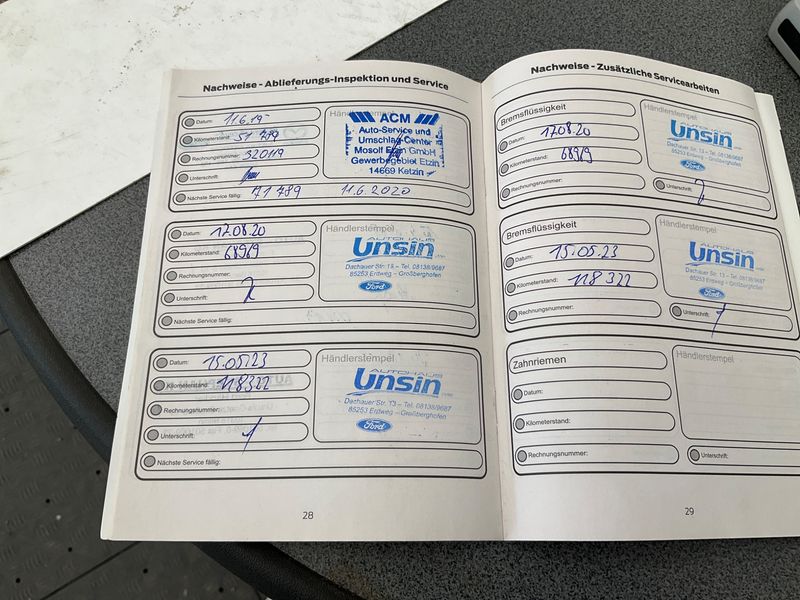 Nachweise - Ablieferungs-Inspektion und Service
Datum: 11.6.19
Händlerstempel
Kilometerstand: 51 789
Rechnungsnummer: 320119
Unterschrift:
Nächste Service fällig: 71 789 11.6.2020
ACM
Auto-Service und
Umschlag-Center
Mosolf Etzin GmbH
Gewerbegebiet Etzin
14669 Ketzin
Datum: 17.08.20
Händlerstempel
Kilometerstand: 68969
Rechnungsnummer:
Unterschrift:
Nächste Service fällig:
AUTOHAUS
Unsin
Dachauer Str. 13 – Tel. 08138/9687
85253 Erdweg – Großberghofen
Ford
Datum: 15.05.23
Händlerstempel
Kilometerstand: 118322
Rechnungsnummer:
Unterschrift:
Nächste Service fällig:
AUTOHAUS
Unsin
Dachauer Str. 13 – Tel. 08138/9687
85253 Erdweg – Großberghofen
Ford
28
Nachweise - Zusätzliche Servicearbeiten
Bremsflüssigkeit
Händlerstempel
Datum: 17.08.20
Kilometerstand: 68969
Rechnungsnummer:
Unterschrift:
Unsin
Dachauer Str. 13 – Tel. 08138/9687
85253 Erdweg – Großberghofen
Ford
Bremsflüssigkeit
Händlerstempel
Datum: 15.05.23
Kilometerstand: 118 322
Rechnungsnummer:
Unterschrift:
AUTOHAUS
Unsin
Dachauer Str. 13 – Tel. 08138/9687
85253 Erdweg – Großberghofen
Ford
Zahnriemen
Händlerstempel
Datum:
Kilometerstand:
Rechnungsnummer:
Unterschrift:
29